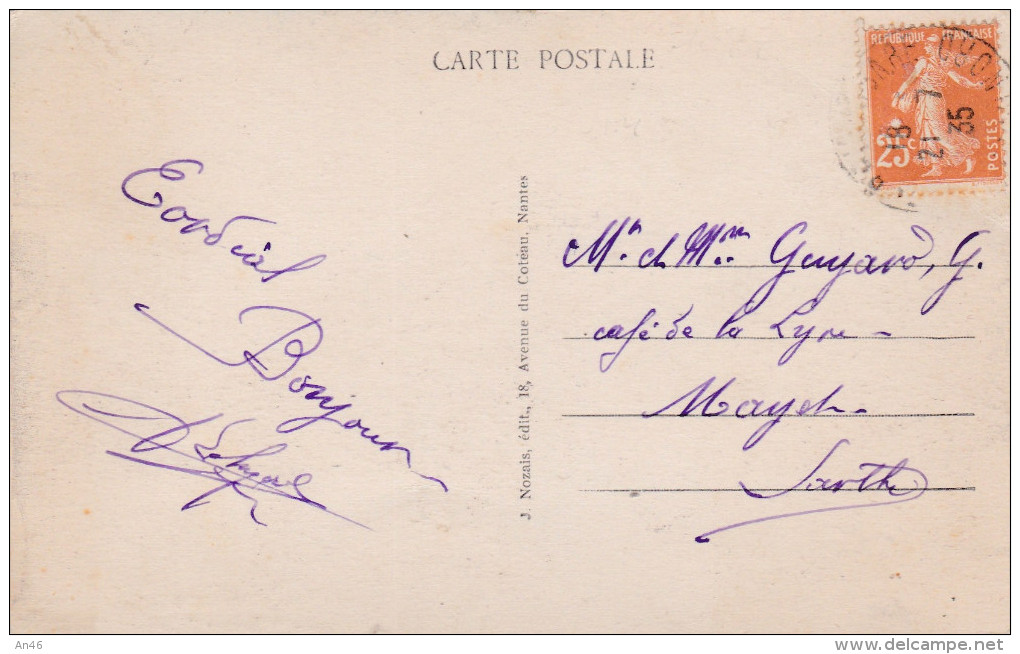 CARTE POSTALE
REPUBLIQUE FRANÇAISE
25c
POSTES
18
21 7
35
Cordial
Bonjour
J. Nozais, édit., 18, Avenue du Coteau, Nantes
Mr. et Mme. Guyard, G.
café de la Lyre
Mayet
Sarthe
An46
www.delcampe.net